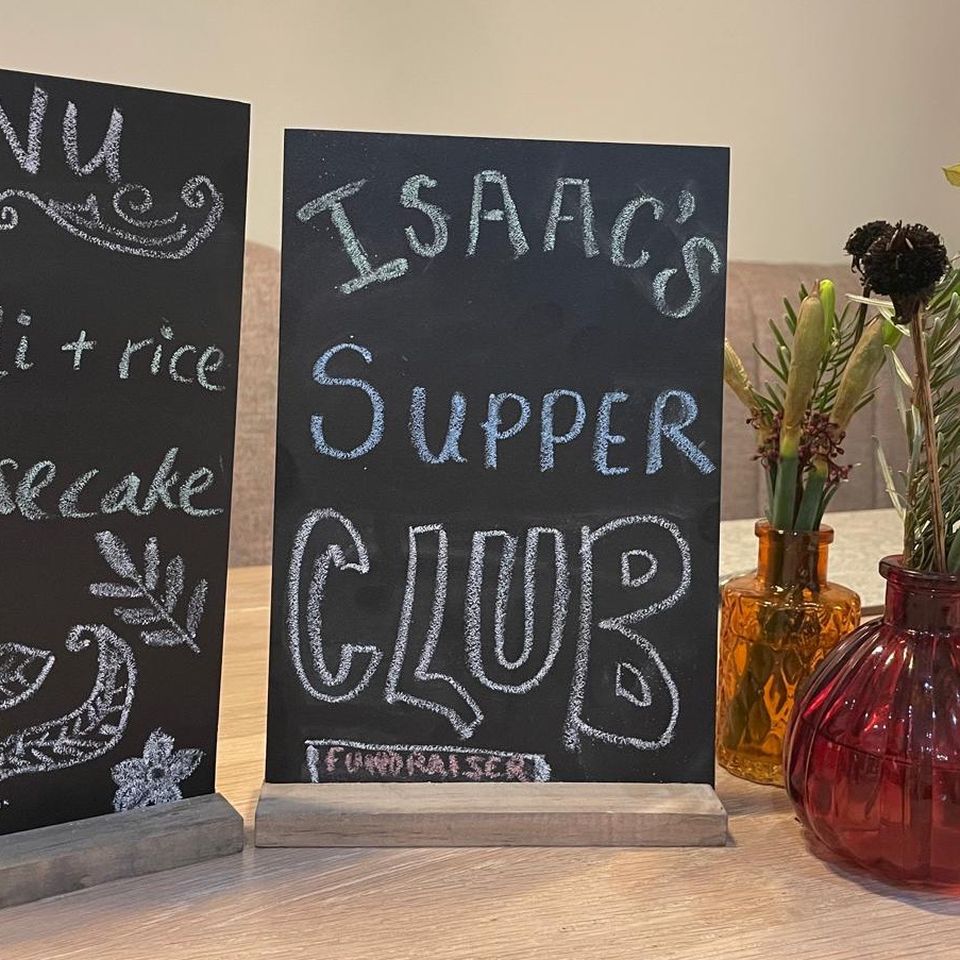 NU
i + rice
secake
ISAAC'S
SUPPER
CLUB
FUNDRAISER